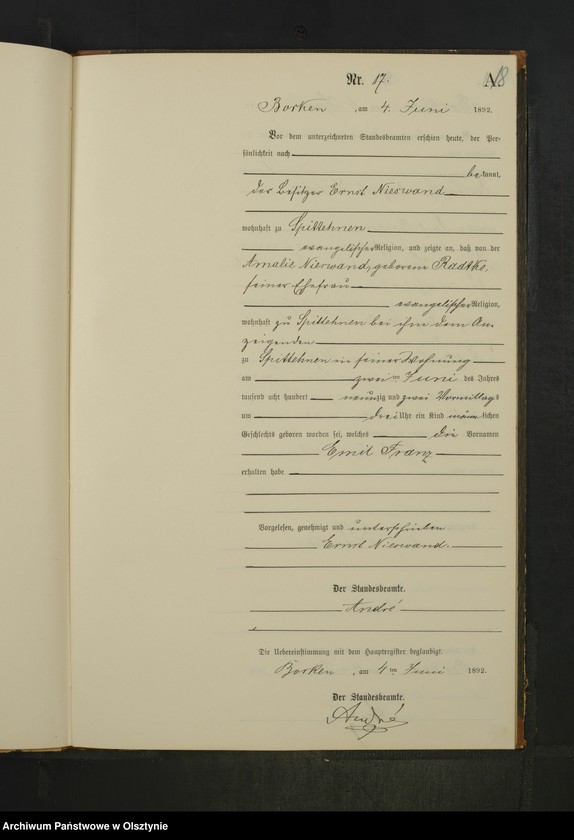 Nr. 17.
A
18
Borken, am 4. Juni 1892.
Vor dem unterzeichneten Standesbeamten erschien heute, der Per-
sönlichkeit nach
bekannt,
der Besitzer Ernst Nieswand
wohnhaft zu Spittehnen
evangelischer Religion, und zeigte an, daß von der
Amalie Nieswand, geborene Radtke,
seiner Ehefrau
evangelischer Religion,
wohnhaft zu Spittehnen bei ihm dem An-
zeigenden
zu Spittehnen in seiner Wohnung
am zweiten Juni des Jahres
tausend acht hundert neunzig und zwei Vormittags
um drei Uhr ein Kind männlichen
Geschlechts geboren worden sei, welches die Vornamen
Emil Franz
erhalten habe
Vorgelesen, genehmigt und unterschrieben
Ernst Nieswand.
Der Standesbeamte.
André
Die Uebereinstimmung mit dem Hauptregister beglaubigt.
Borken, am 4ten Juni 1892.
Der Standesbeamte.
André
Archiwum Państwowe w Olsztynie